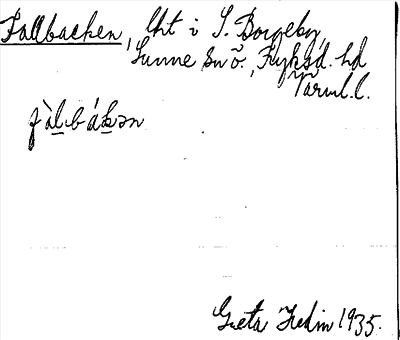 Fallbacken, lht i S. Borgeby,
Sunne sn ö., Fryksd. hd
Värml. l.
fàl·bákən
Greta Hedin 1935.